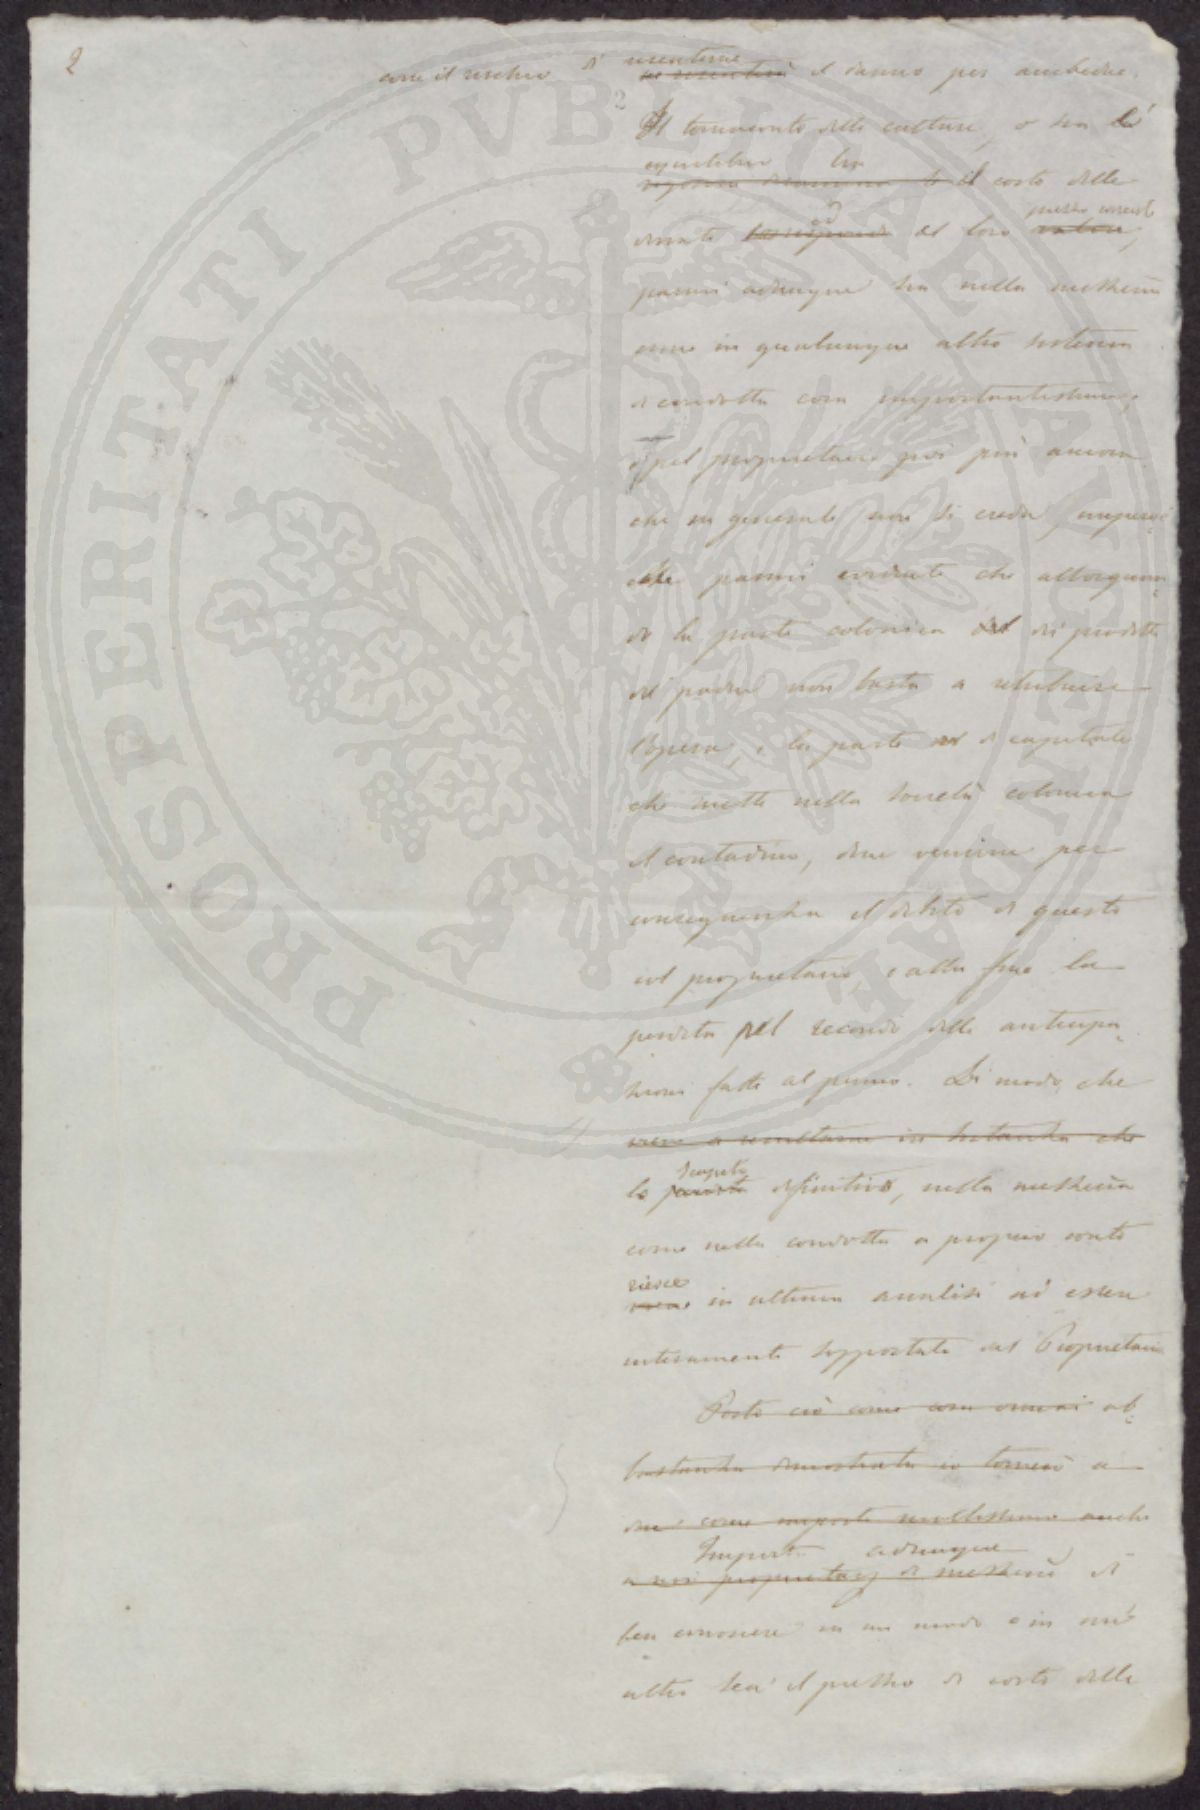 2
corre il rischio di risentirne
ne risentirà il danno per ambedue.
2
Il tornaconto delle culture, o sia l'
equilibrio tra
il costo delle
derrate corrisponde od al loro valore, prezzo corrente
parmi adunque sia nella mezzeria
come in qualunque altro sistema
di condotta cosa importantissima,
e pel proprietario poi più ancora
che in generale non si creda, imperoc=
chè parmi evidente che allorquan=
do la parte colonica del dei prodotti
del podere non basta a retribuire
l'opera, e la parte di capitale
che mette nella società colonica
il contadino, deve venirne per
conseguenza il debito di questo
col proprietario, e alla fine la
perdita pel secondo delle anticipa=
zioni fatte al primo. Di modo che
viene a resultarne in sostanza che
lo scapito
la perdita definitivo, nella mezzeria
come nella condotta a proprio conto
riesce
viene in ultima analisi ad essere
interamente sopportato dal Proprietario
Posto ciò come cosa omai ab=
bastanza dimostrata io tornerò a
dire come importi moltissimo anche
Importa adunque
a noi proprietarj di mezzerie di
ben conoscere in un modo o in un'
altro sia il prezzo di costo delle
PROSPERITATI PVBLICAE AVGENDAE